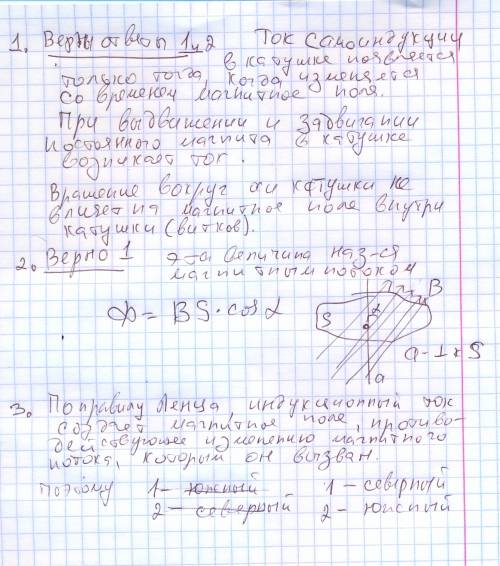 1. Верны ответы 1 и 2 Ток самоиндукции
в катушке появляется
только тогда, когда изменяется
со временем магнитное поле.
При выдвижении и задвигании
постоянного магнита в катушке
возникает ток.
Вращение вокруг оси катушки не
влияет на магнитное поле внутри
катушки (витков).
2. Верно 1 эта величина наз-ся
магнитным потоком
Ф = BS·cosα
B
S
α
a - ⊥ к S
a
3. По правилу Ленца, индукционный ток
создает магнитное поле, противо-
действующее изменению магнитного
потока, которым он вызван.
Поэтому 1 - южный 1 - северный
2 - северный 2 - южный